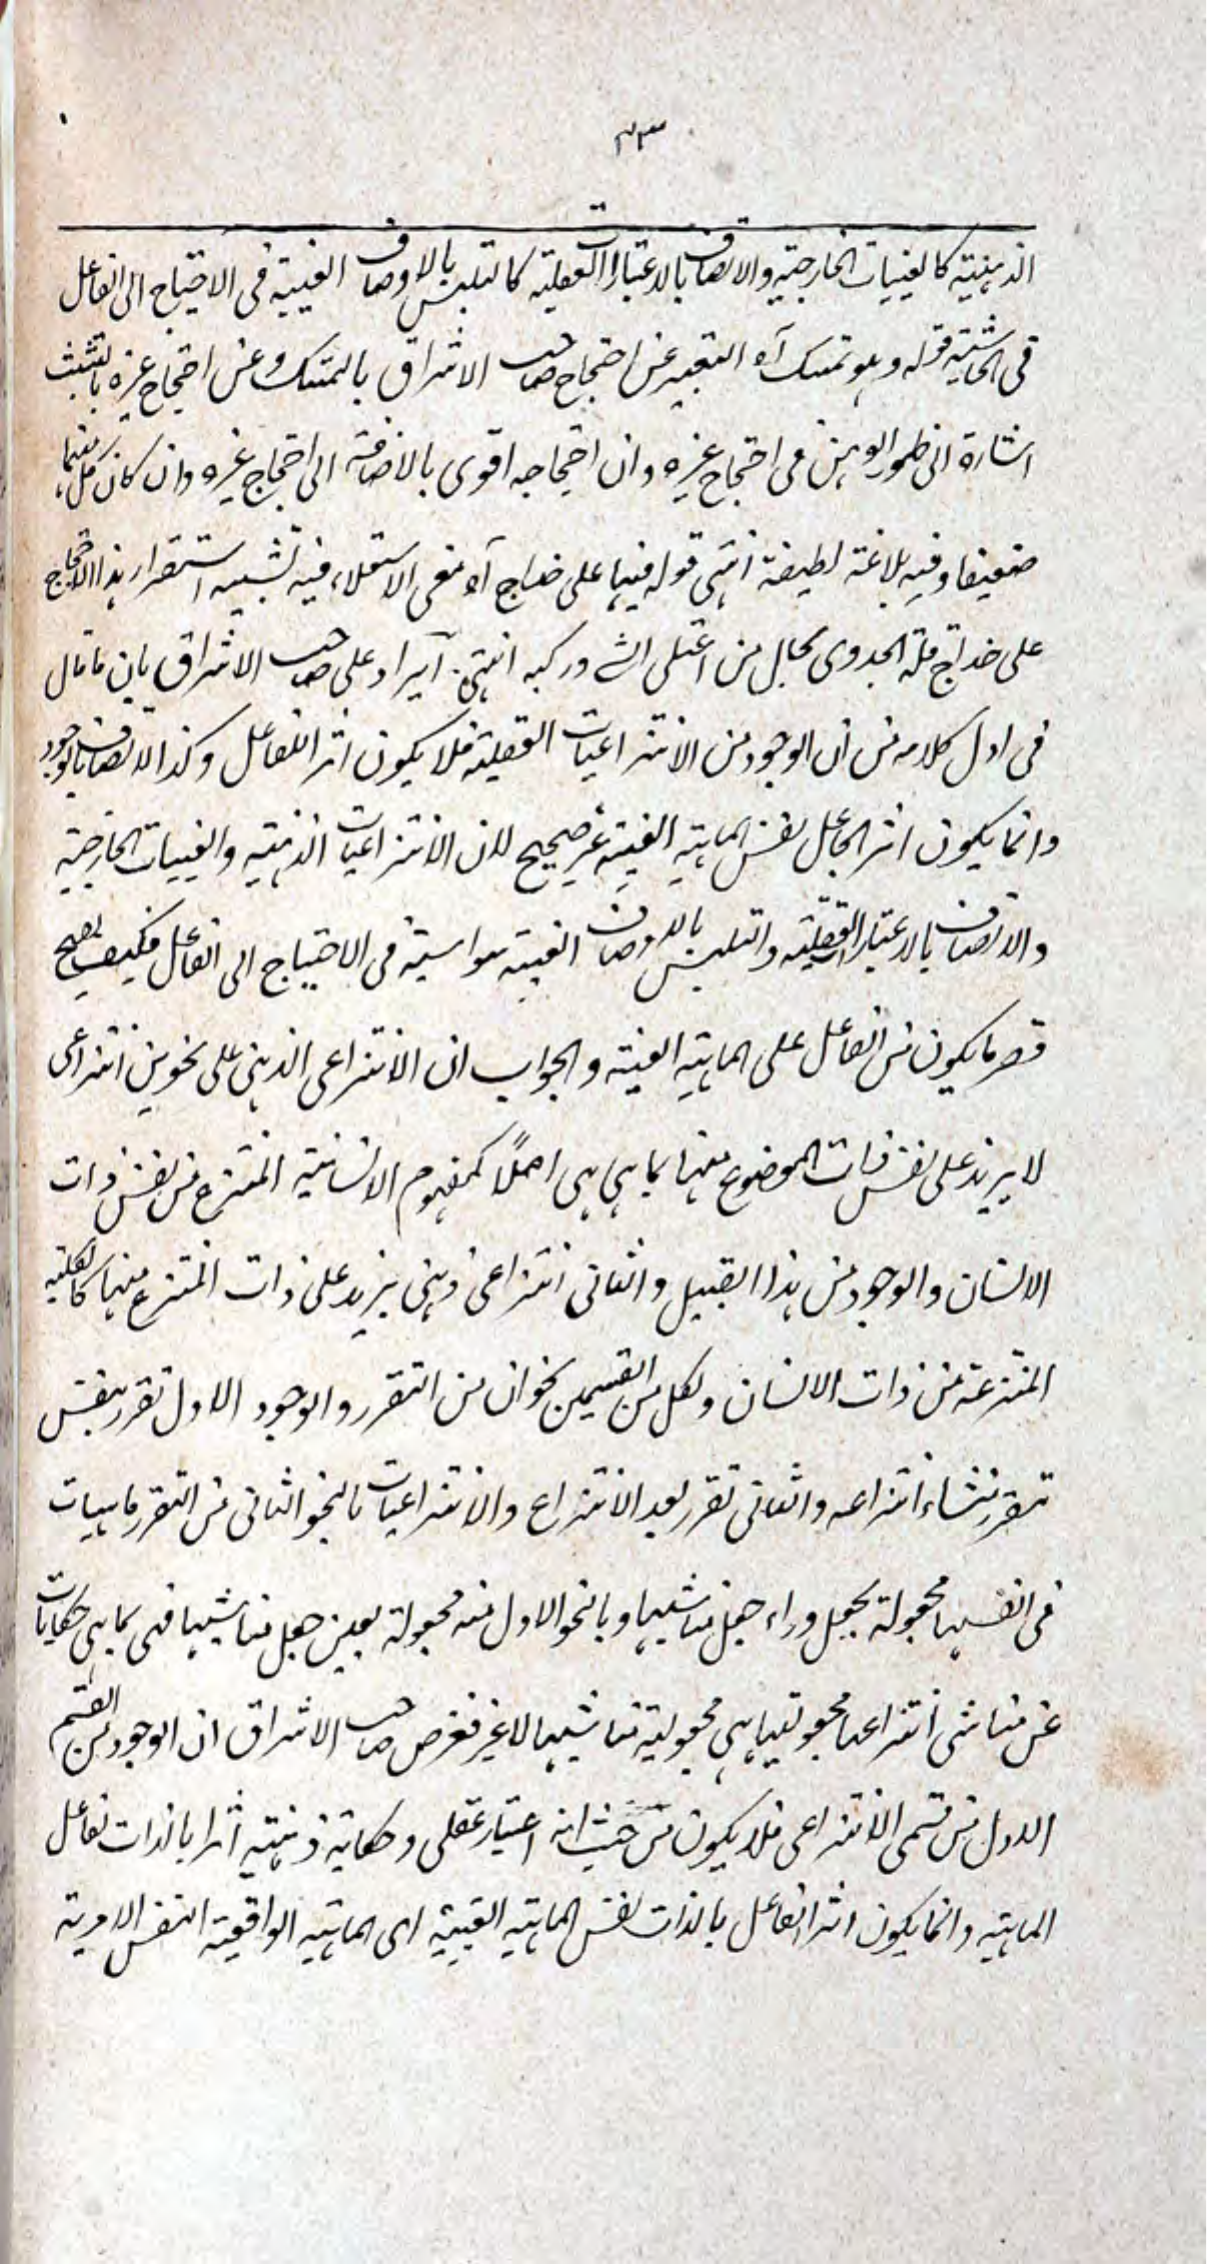 ٣٣
الذهنية كالعينيات الخارجية والاتصاف بالاعتبارات العقلية كالتلبس بالاوصاف العينية فى الاحتياج الى الفاعل
فى الحاشية قوله وهو تمسك آه التعبير عن احتجاج صاحب الاشراق بالتمسك وعن احتجاج غيره بالتشبث
اشارة الى ظهور الوهن فى احتجاج غيره وان احتجاجه اقوى بالاضافة الى احتجاج غيره وان كان كل منهما
ضعيفا وفيه بلاغة لطيفة انتهى قوله فيها على خداج آه معنى الاستعلاء فيه تشبيه استقرار هذا الاحتجاج
على خداج قلة الجدوى بحال من اعتلى الشئ وركبه انتهى ايراد على صاحب الاشراق بان ما قال
فى اول كلامه من ان الوجود من الانتزاعيات العقلية فلا يكون اثر الفاعل وكذا الاتصاف بالوجود
وانما يكون اثر الجاعل نفس الماهية العينية غير صحيح لان الانتزاعيات الذهنية والعينيات الخارجية
والاتصاف بالاعتبارات العقلية والتلبس بالاوصاف العينية سواسية فى الاحتياج الى الفاعل فكيف يصح
قصر ما يكون من الفاعل على الماهية العينية والجواب ان الانتزاعى الذهنى على نحوين انتزاعى
لا يزيد على نفس ذات الموضوع منها بما هى هى اصلاً كمفهوم الانسانية المنتزع من نفس ذات
الانسان والوجود من هذا القبيل والثانى انتزاعى ذهنى يزيد على ذات المنتزع منها كالكلية
المنتزعة من ذات الانسان ولكل من القسمين نحوان من التقرر والوجود الاول تقرر بنفس
تقرر منشاء انتزاعه والثانى تقرر بعد الانتزاع والانتزاعيات بالنحو الثانى من التقرر ماهيات
فى انفسها مجعولة بجعل وراء جعل مناشيها وبالنحو الاول منه مجعولة بعين جعل مناشيها فهى بما هى حكايات
عن مناشى انتزاعها مجعوليتها هى مجعولية مناشيها لا غير فغرض صاحب الاشراق ان الوجود من القسم
الاول من قسمى الانتزاعى فلا يكون من حيث انه اعتبار عقلى وحكاية ذهنية اثرا بالذات لفاعل
الماهية وانما يكون اثر الفاعل بالذات نفس الماهية العينية اى الماهية الواقعية النفس الامرية